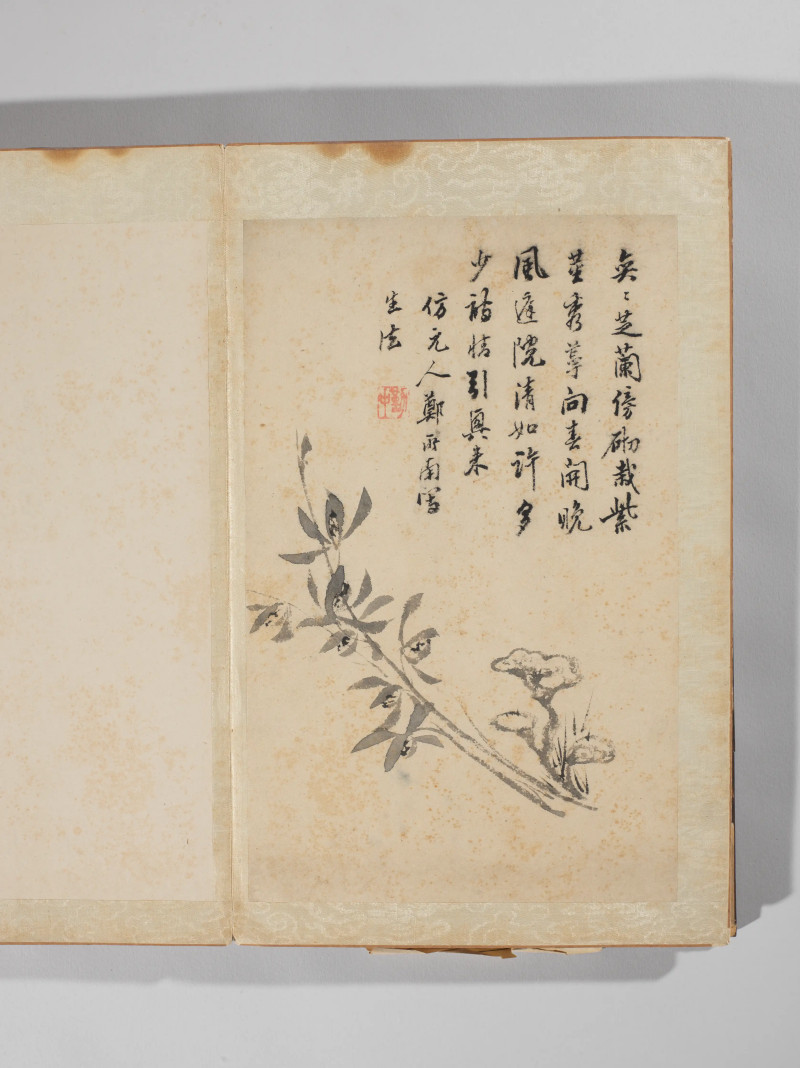 奕〻芝蘭傍砌栽紫
莖秀萼向春開晚
風庭院清如許多
少詩情引興来
仿元人鄭所南寫
生法